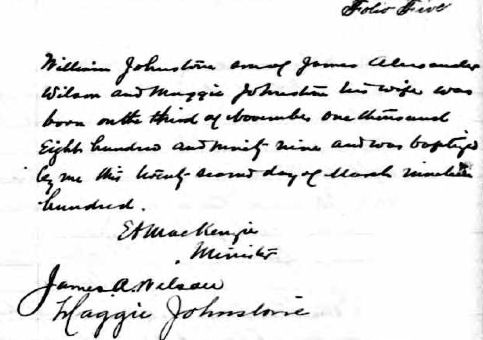 Folio Five
William Johnstone son of James Alexander
Wilson and Maggie Johnston his wife was
born on the third of November one thousand
Eight hundred and ninety nine and was baptized
by me this twenty second day of March nineteen
hundred.
E A MacKenzie
Minister
James A. Wilson
Maggie Johnstone